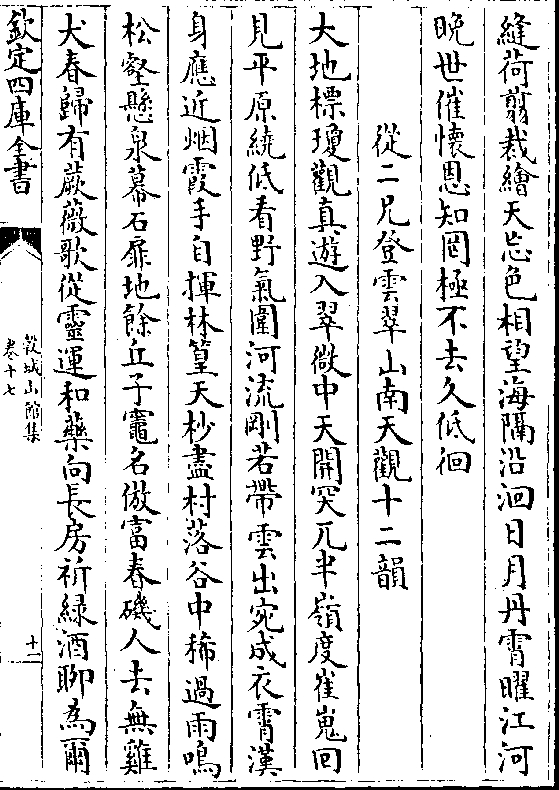 縫荷翦裁繪天忘色相望海隔沿洄日月丹霄曜江河
晚世催懷恩知罔極不去久低徊
從二兄登雲翠山南天觀十二韻
大地標瓊觀真遊入翠微中天開突兀半嶺度崔嵬回
見平原繞低看野氣圍河流剛若帶雲出宛成衣霄漢
身應近烟霞手自揮林篁天杪盡村落谷中稀過雨鳴
松壑懸泉幕石扉地餘丘子竈名倣富春磯人去無雞
犬春歸有蕨薇歌從靈運和藥向長房祈綠酒聊為爾
欽定四庫全書
穀城山館集
卷十七
十一